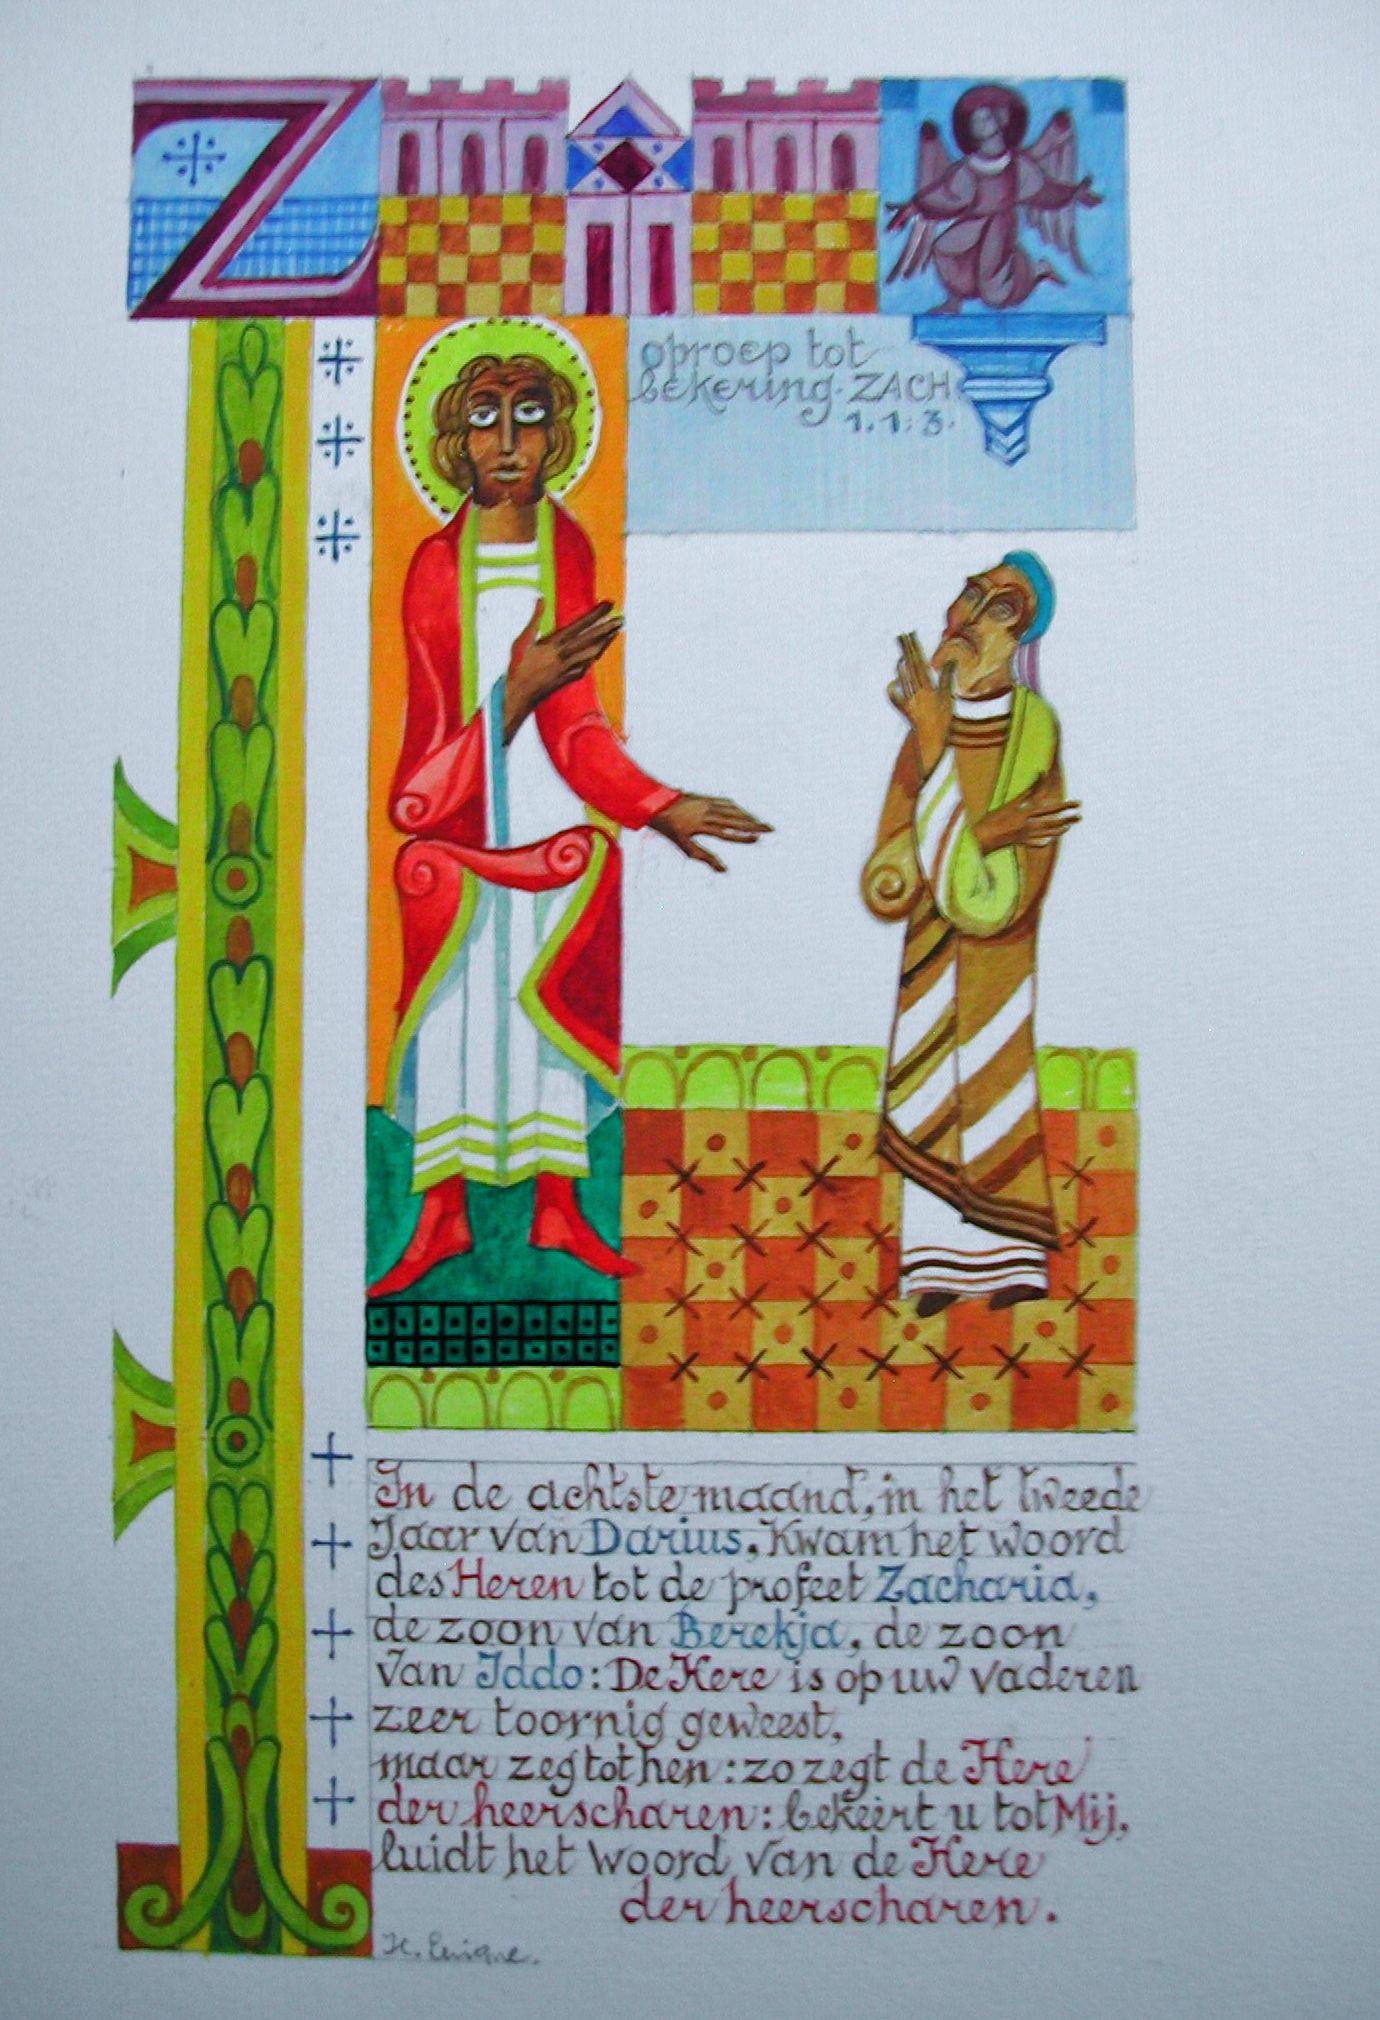 Z
oproep tot
bekering. ZACH
1.1:3.
In de achtste maand, in het tweede
Jaar van Darius, Kwam het woord
des Heren tot de profeet Zacharia,
de zoon van Berekja, de zoon
van Iddo: De Here is op uw vaderen
zeer toornig geweest,
maar zeg tot hen: zo zegt de Here
der heerscharen: bekeert u tot Mij,
luidt het woord van de Here
der heerscharen.